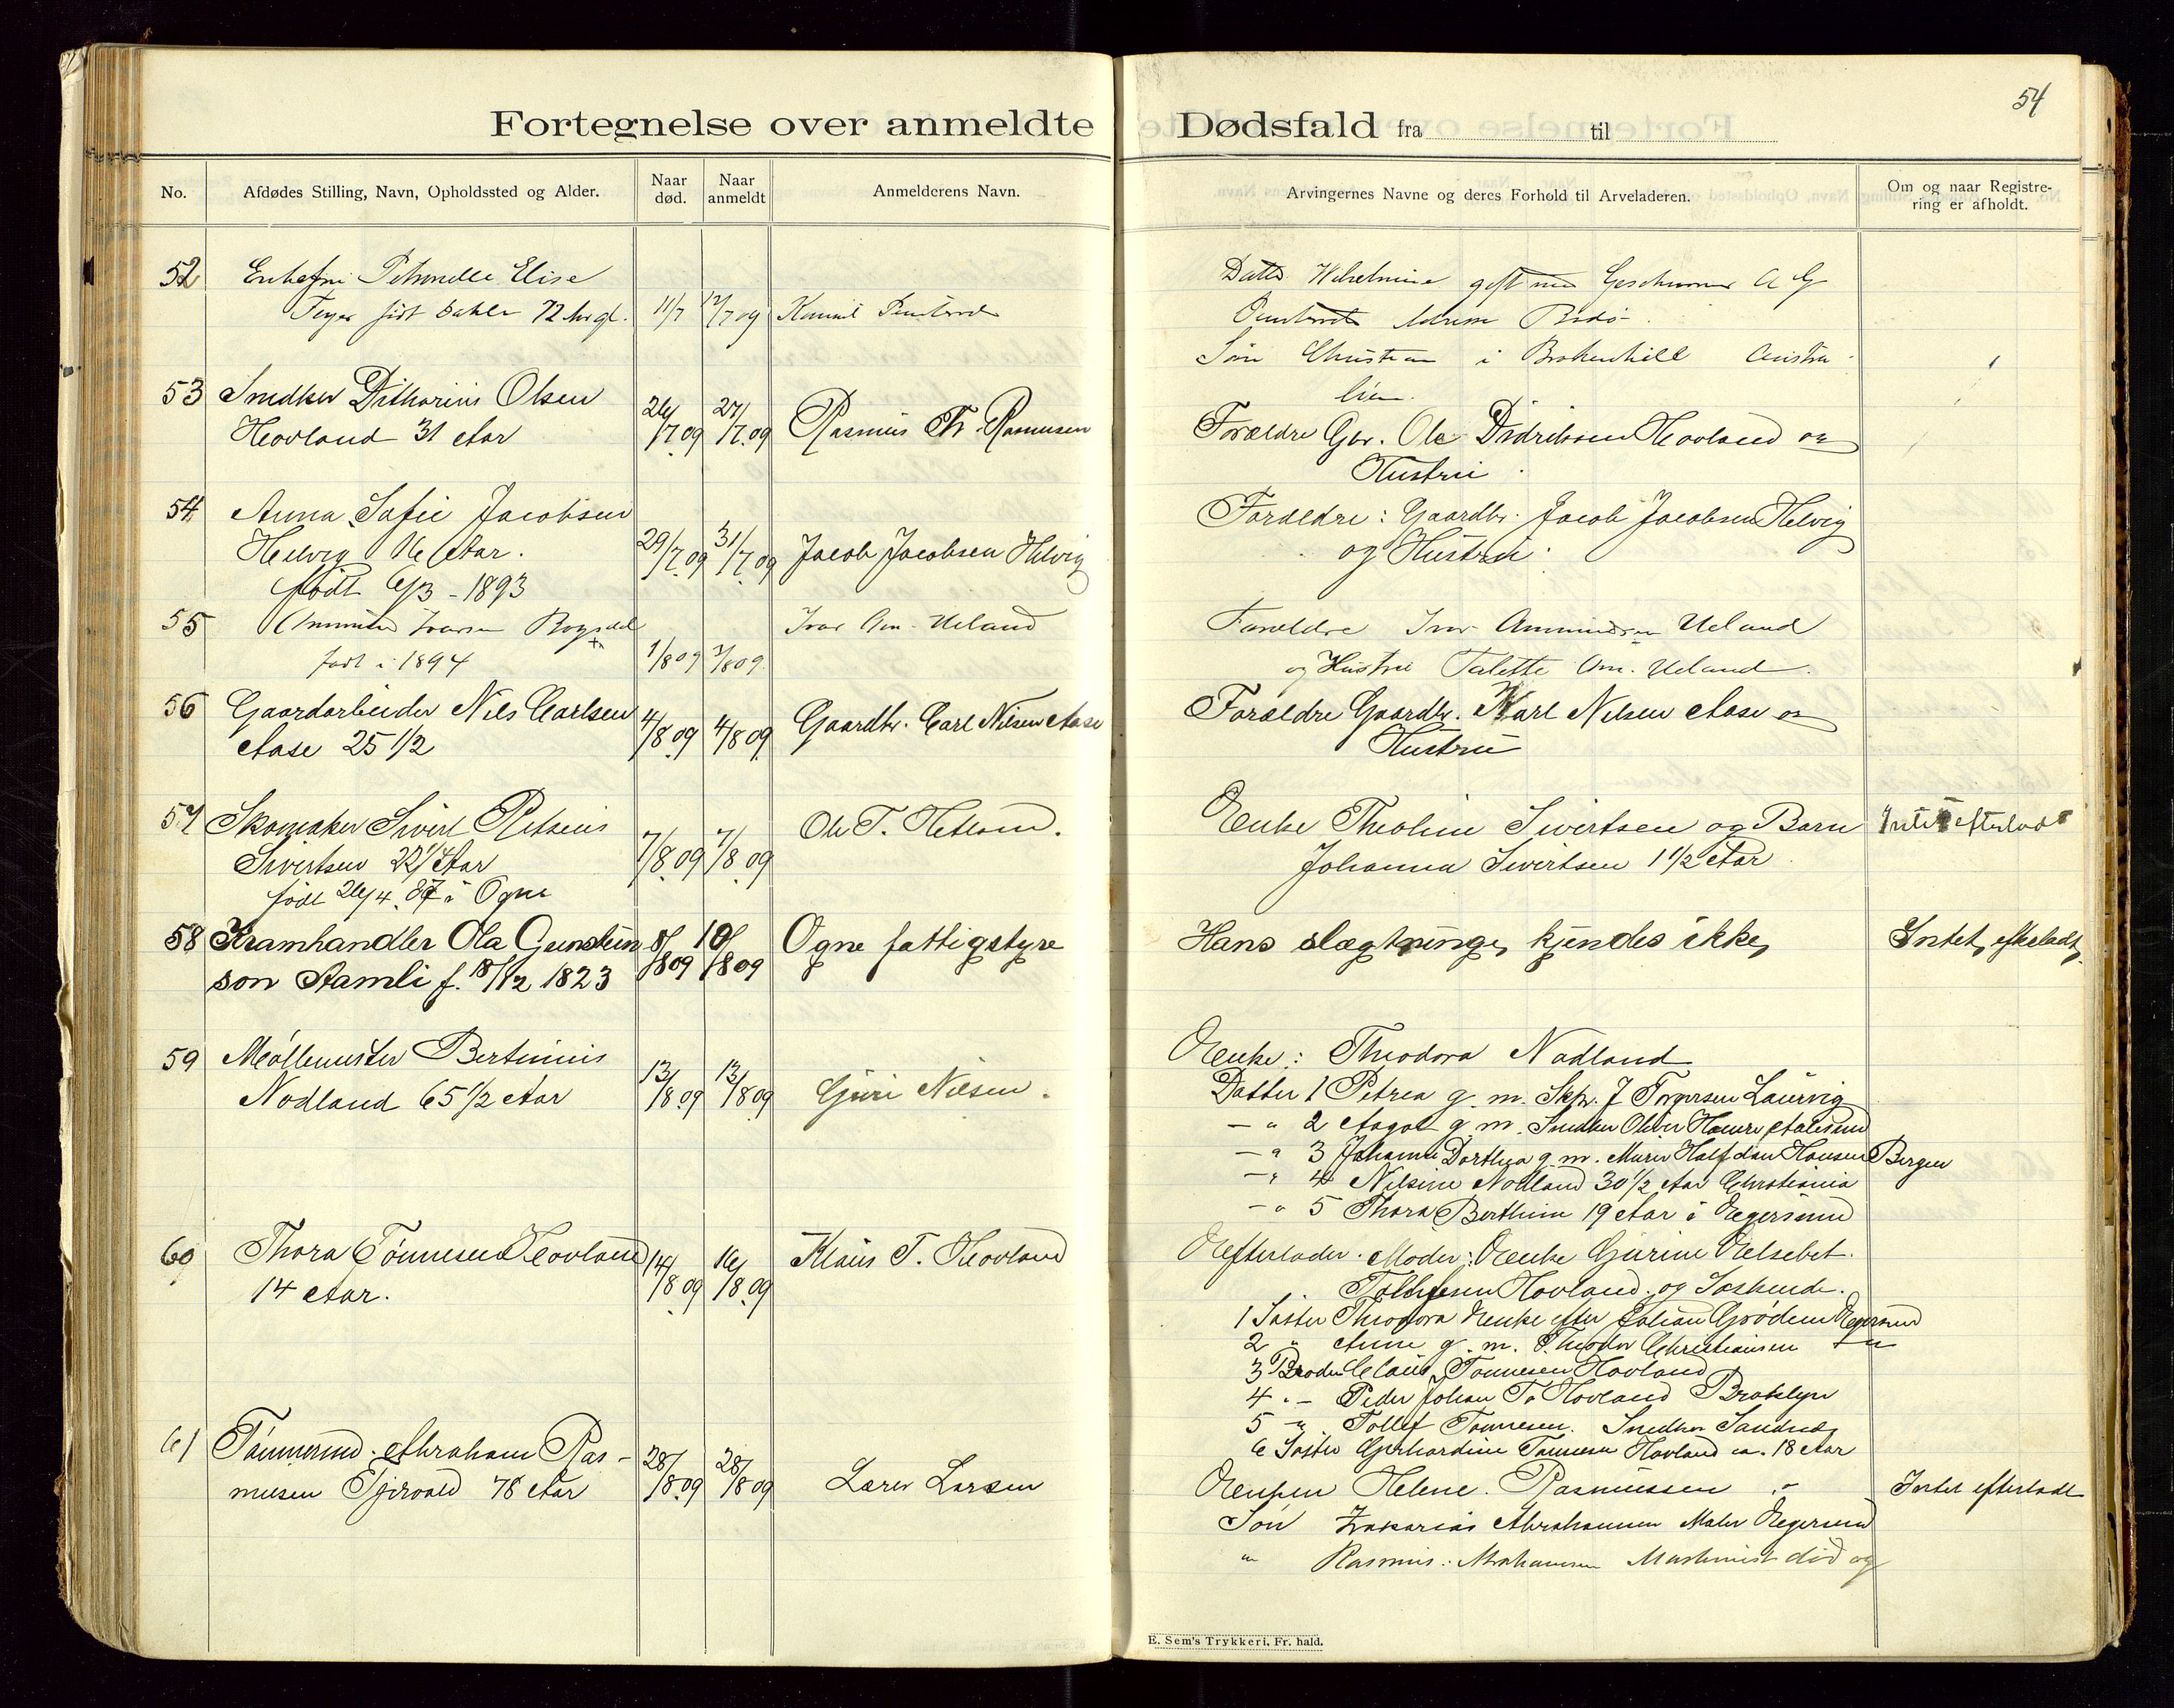 54
Fortegnelse over anmeldte Dødsfald fra til
No.
Afdødes Stilling, Navn, Opholdssted og Alder.
Naar død.
Naar anmeldt
Anmelderens Navn.
Arvingernes Navne og deres Forhold til Arveladeren.
Om og naar Registrering er afholdt.
52 Enkefru Petronelle Elise
Feyer født Dahle 72 Aar gl. 11/7 12/7 09
Datter Wilhelmine gift med A G
Adresse Bodø
Søn Christian i Brokenhill Austra
lien.
53 Snedker Ditharius Olsen
Hovland 31 Aar 26/7.09 27/7.09 Rasmus Th. Rasmusen
Forældre Gbr. Ole Didriksen Hovland og
Hustru
54 Anna Sofie Jacobsen
Helvig 16 Aar. 29/7.09 31/7.09 Jacob Jacobsen Helvig
født 6/3 - 1893
Forældre: Gaardbr. Jacob Jacobsen Helvig
og Hustru.
55 Ammund Ivarsen
født i 1894 1/8 09 3/8 09 Ivar Am. Ueland
Forældre Ivar Ammundsen Ueland
og Hustru Talette Am. Ueland.
56 Gaardarbeider Nils Carlsen
Aase 25 1/2 4/8 09 4/8 09 Gaardbr. Carl Nilsen Aase
Forældre Gaardbr. Karl Nilsen Aase og
Hustru
57 Skomaker Sivert
Sivertsen 22 1/4 Aar 7/8.09 7/8.09 Ole T. Hetland.
født 26/4. 87 i Ogne
Enke Theoline Sivertsen og Barn
Johanna Sivertsen 1 1/2 Aar
Intet efterladt
58 Kramhandler Ola Gunstein
son Aamli f. 18/12 1823 8/8 09 10/8 09 Ogne fattigstyre
Hans slægtninge kjendes ikke,
Intet, efteladt,
59 Møllemester Bertinius
Nodland 65 1/2 Aar 13/8 09 13/8 09 Guri Nilsen.
Enke: Theodora Nodland
Datter 1 Petrea g. m. Skpr. J Torgersen Laurvig
— " 2 Aagot g. m. Snedker Oliver Aalesund
— " 3 Johanne Dorthea g. m. Murer Halfdan Hansen Bergen
— " 4 Nilsine Nodland 30 1/2 Aar Christiania
— " 5 Thora Berthine 19 Aar i Egersund
60 Thora Tønnesen Hovland
14 Aar. 14/8 09 16/8.09 Klaus T. Hovland
Efterlader. Moder: Enke Gurine Elsebet.
Hovland. og Søskende.
1 Søster Theodora Enke efter Johan Grødem Egersund
2 " Anne g. m. Theodor Christiansen — " —
3 Broder Claus Tønnesen Hovland
4 " — Peder Johan T. Hovland Broklyn
5 — " Tollef Tønnesen. Snedker Sandnes
6 Søster Gerhardine Tønnesen Hovland ca. 18 Aar
61 Tømmermd. Abraham Ras-
musen Tjørvald 78 Aar 28/8 09 28/8 09 Larsen
Enken Helene. Rasmussen
Intet efterladt
Søn Zakarias Abrahamsen Maler Egersund
" Rasmus. Abrahamsen Maskinist død og
E. Sem's Trykkeri, Fr. hald.